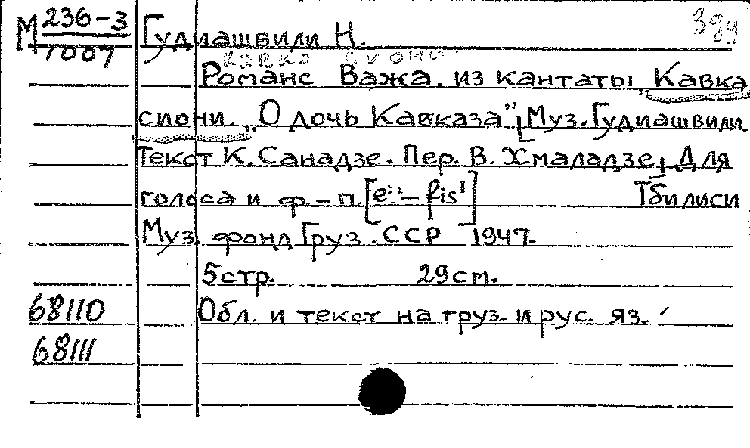 М 236-3 Гудиашвили Н.
1007
Романс Важа. из кантаты „Кавка
сиони. „О дочь Кавказа" [Муз. Гудиашвили
Текст К. Санадзе. Пер. В. Хмаладзе] Для
голоса и ф-п [e - fis'] Тбилиси
Муз. фонд Груз. ССР 1947.
5 стр. 29 cm.
68110 Обл. и текст на груз. и рус. яз.
68111